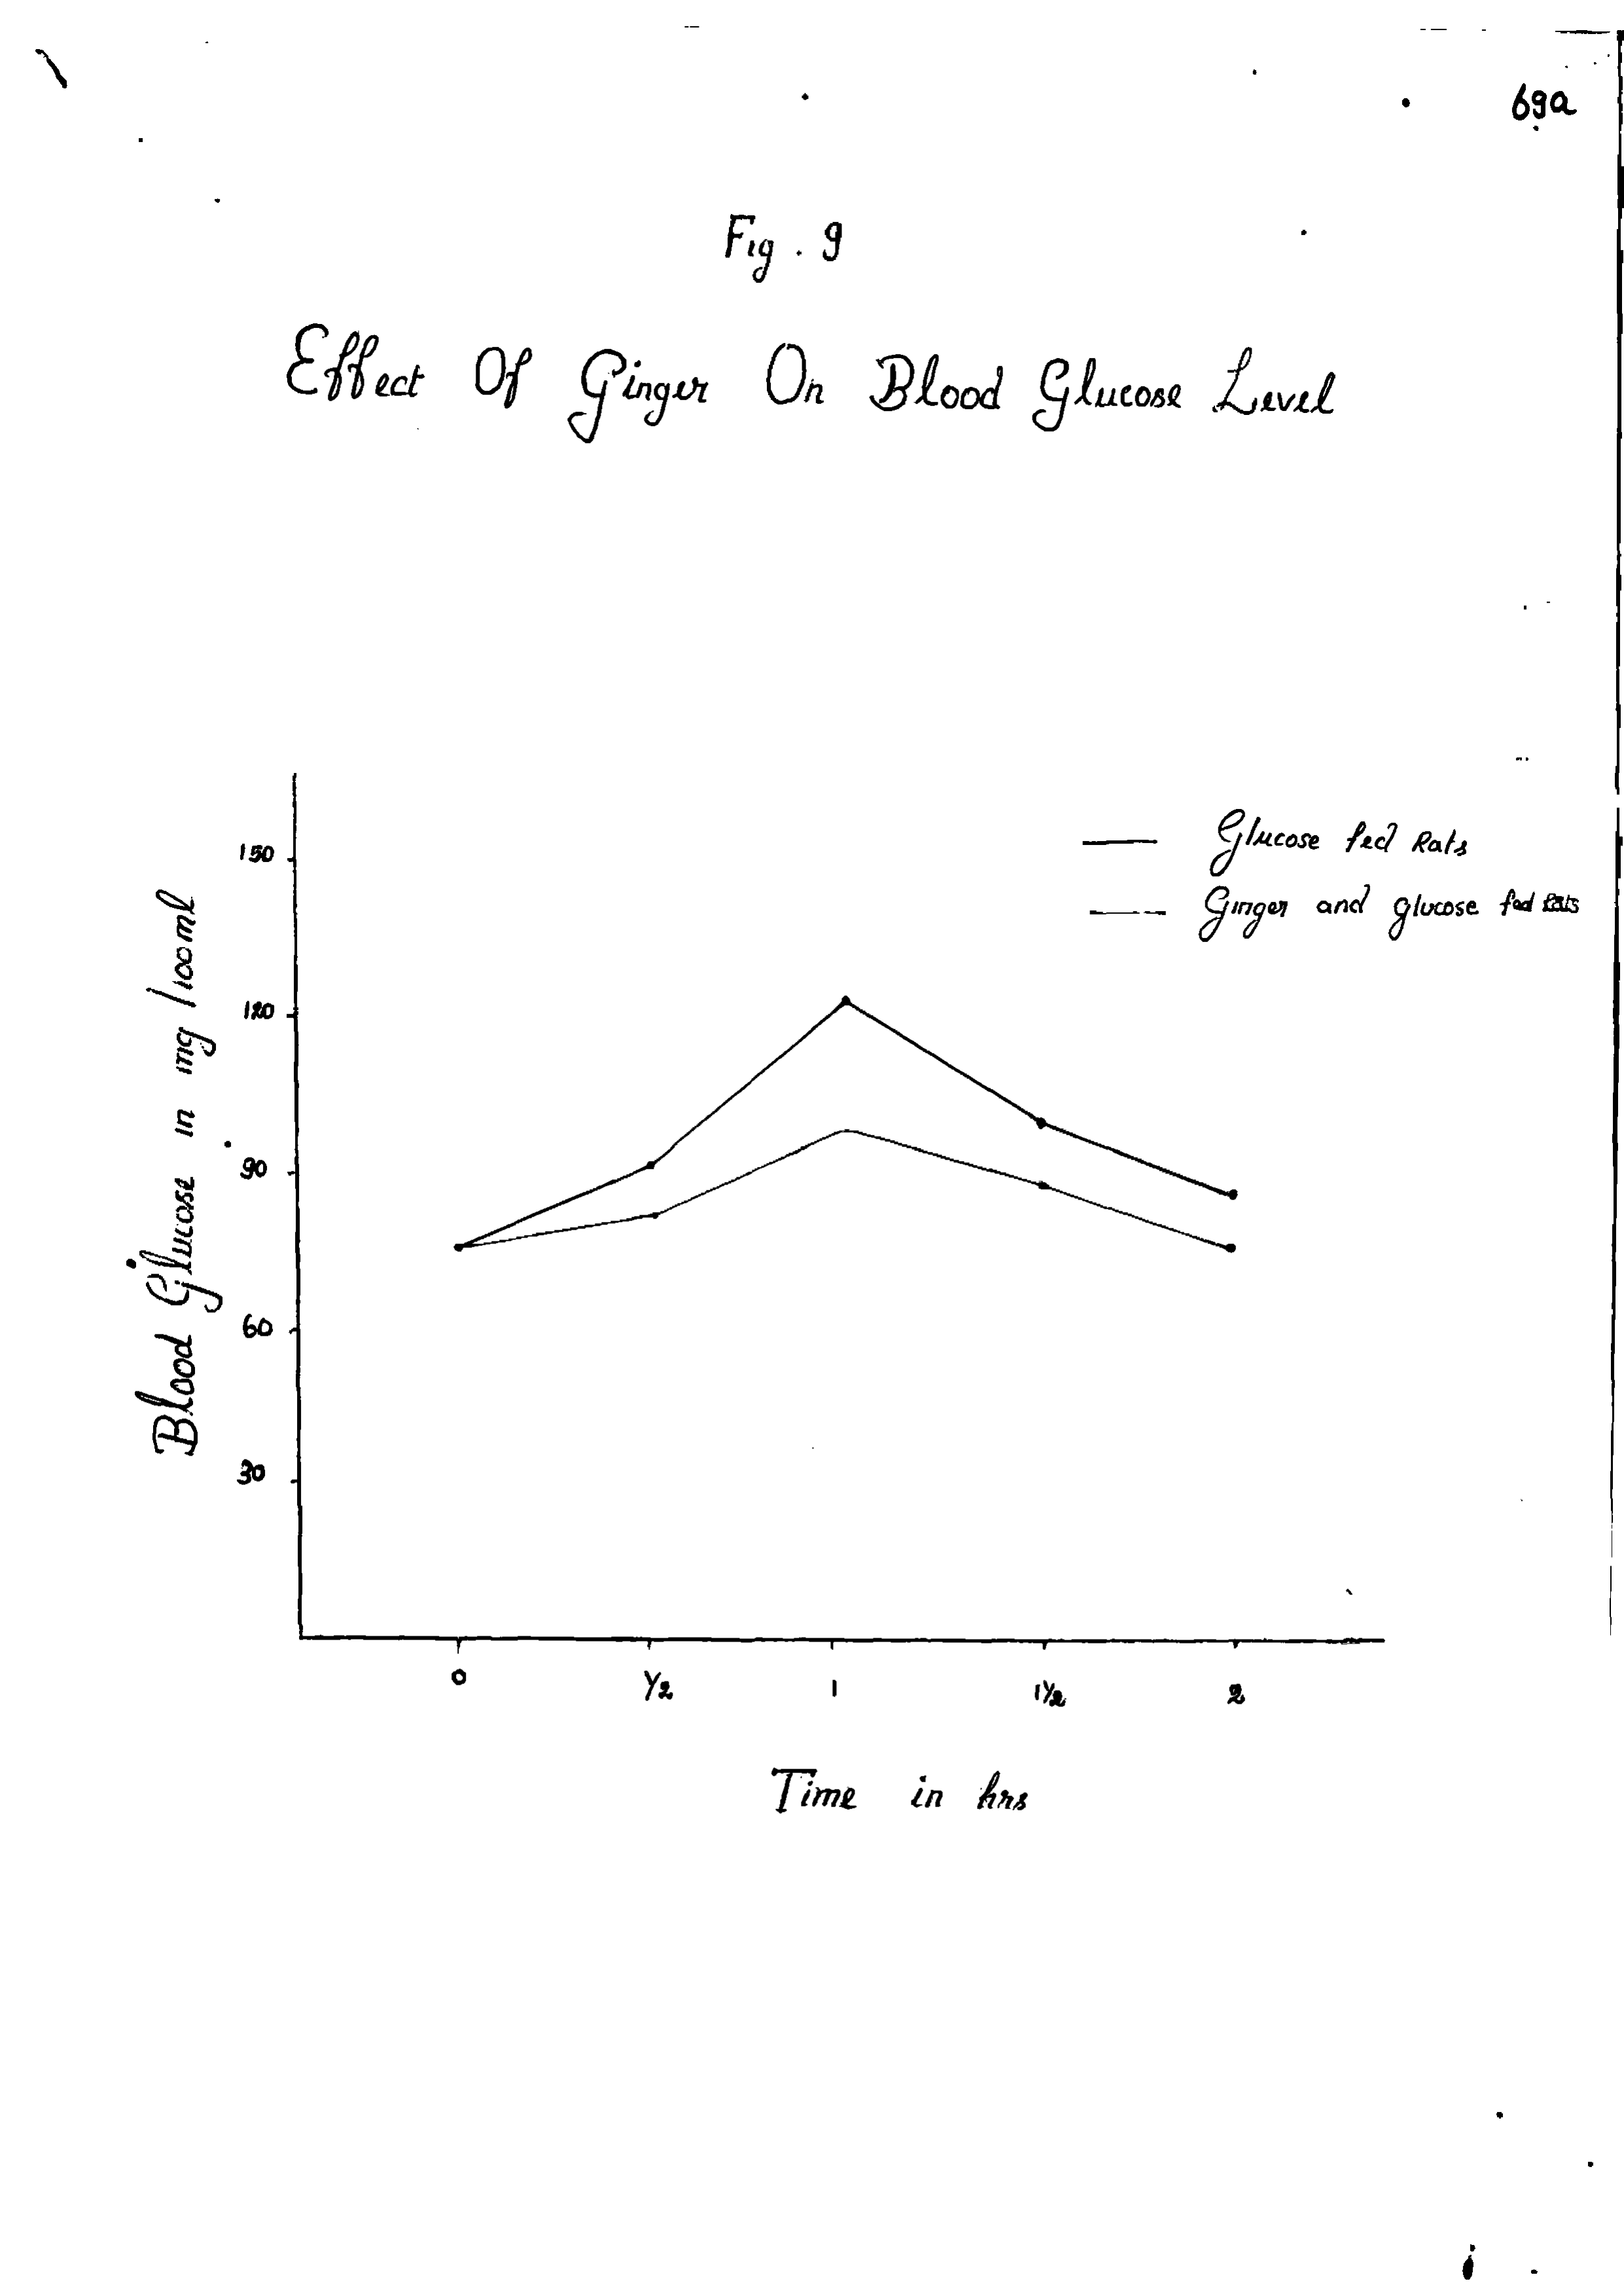 69a
Fig. 9
Effect Of Ginger On Blood Glucose Level
Glucose fed Rats
Ginger and glucose fed Rats
Blood Glucose in mg/100ml
150
120
90
60
30
0 1/2 1 1 1/2 2
Time in hrs